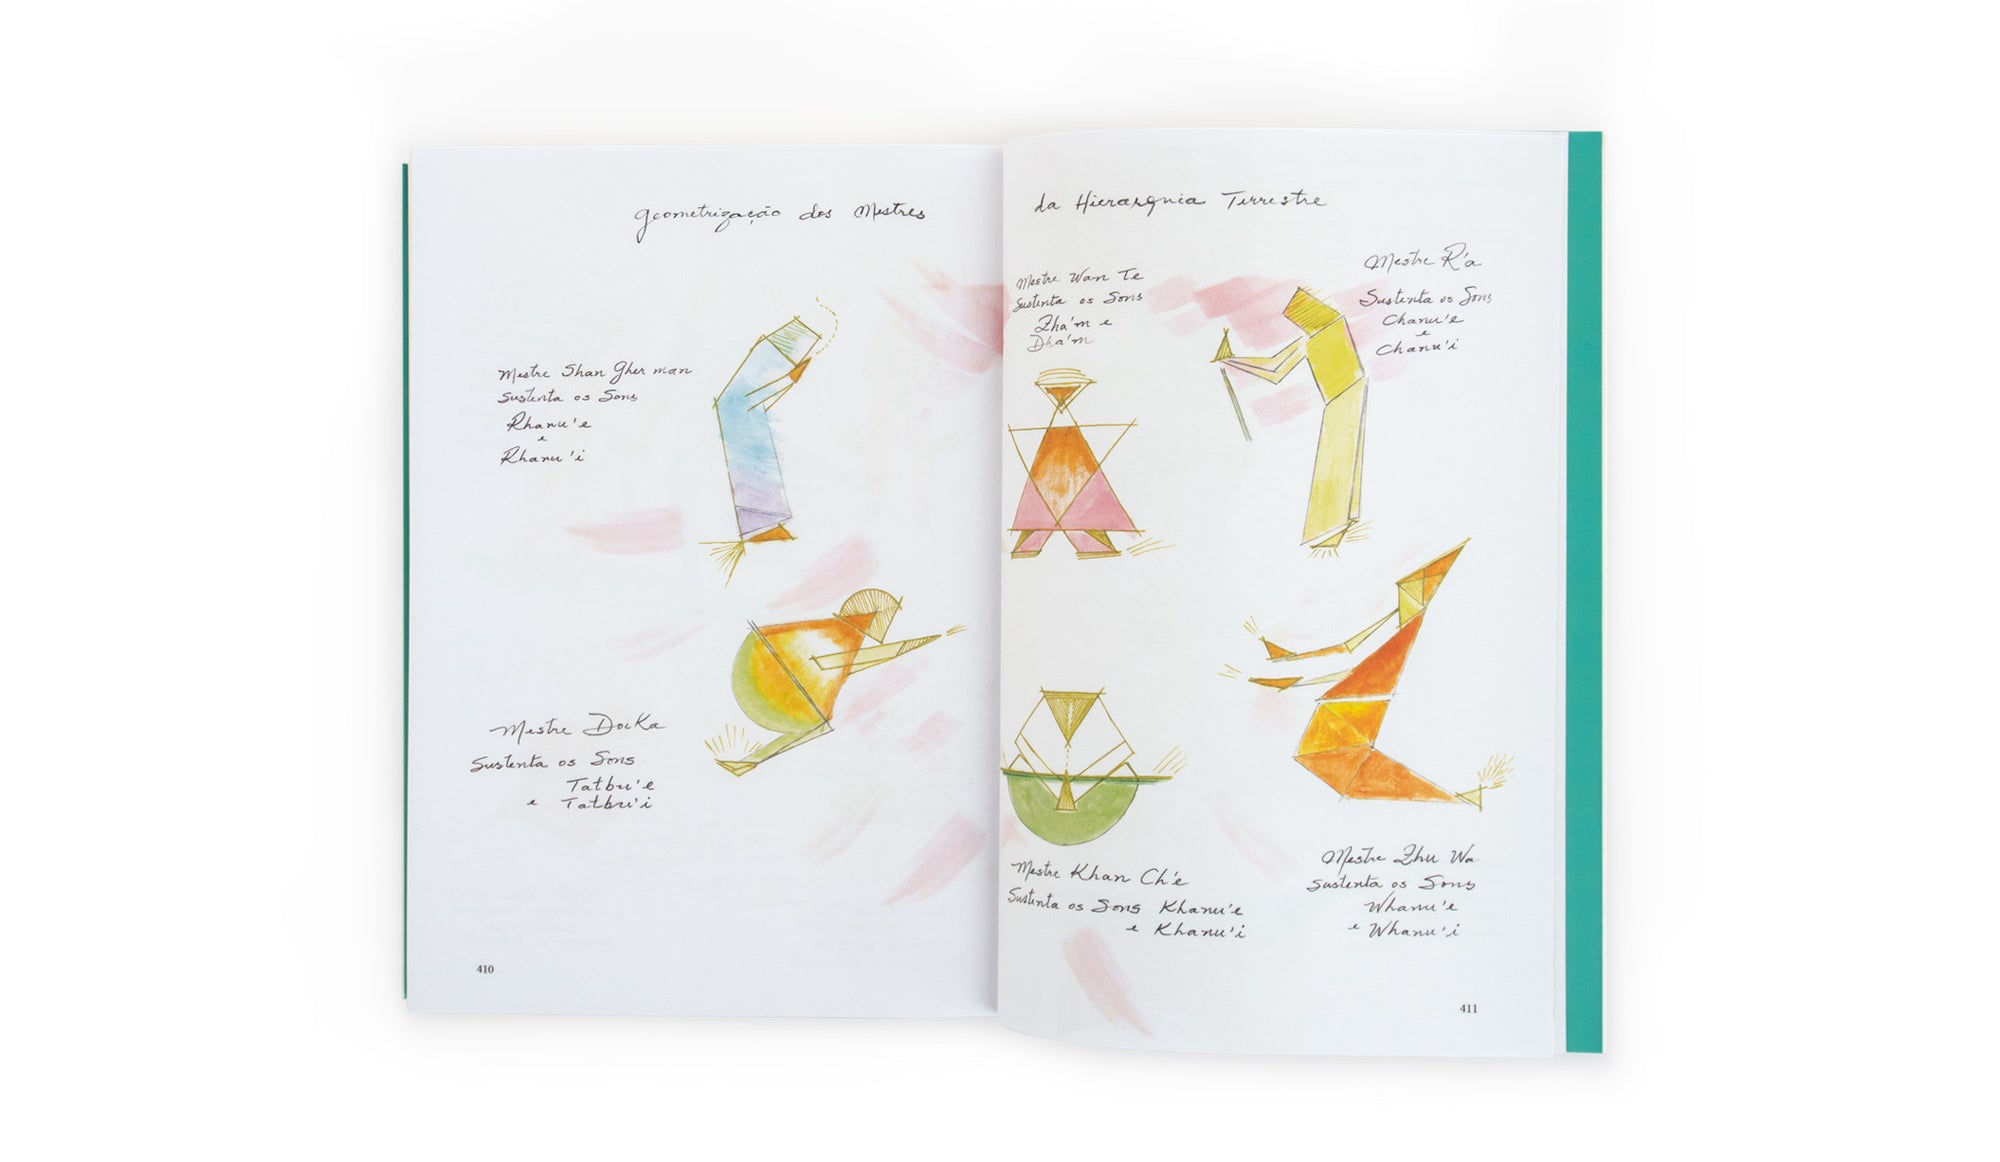 Geometrização dos Mestres
Mestre Shan Gher man
Sustenta os Sons
Rhanu'e
e
Rhanu'i
Mestre Docka
Sustenta os Sons
Tatbu'e
e Tatbu'i
410
da Hierarquia Terrestre
Mestre Wan Te
Sustenta os Sons
Zha'm e
Dha'm
Mestre R'a
Sustenta os Sons
Chanu'e
e
Chanu'i
Mestre Khan Ch'e
Sustenta os Sons Khanu'e
e Khanu'i
Mestre Zhu Wa
Sustenta os Sons
Whanu'e
e Whanu'i
411